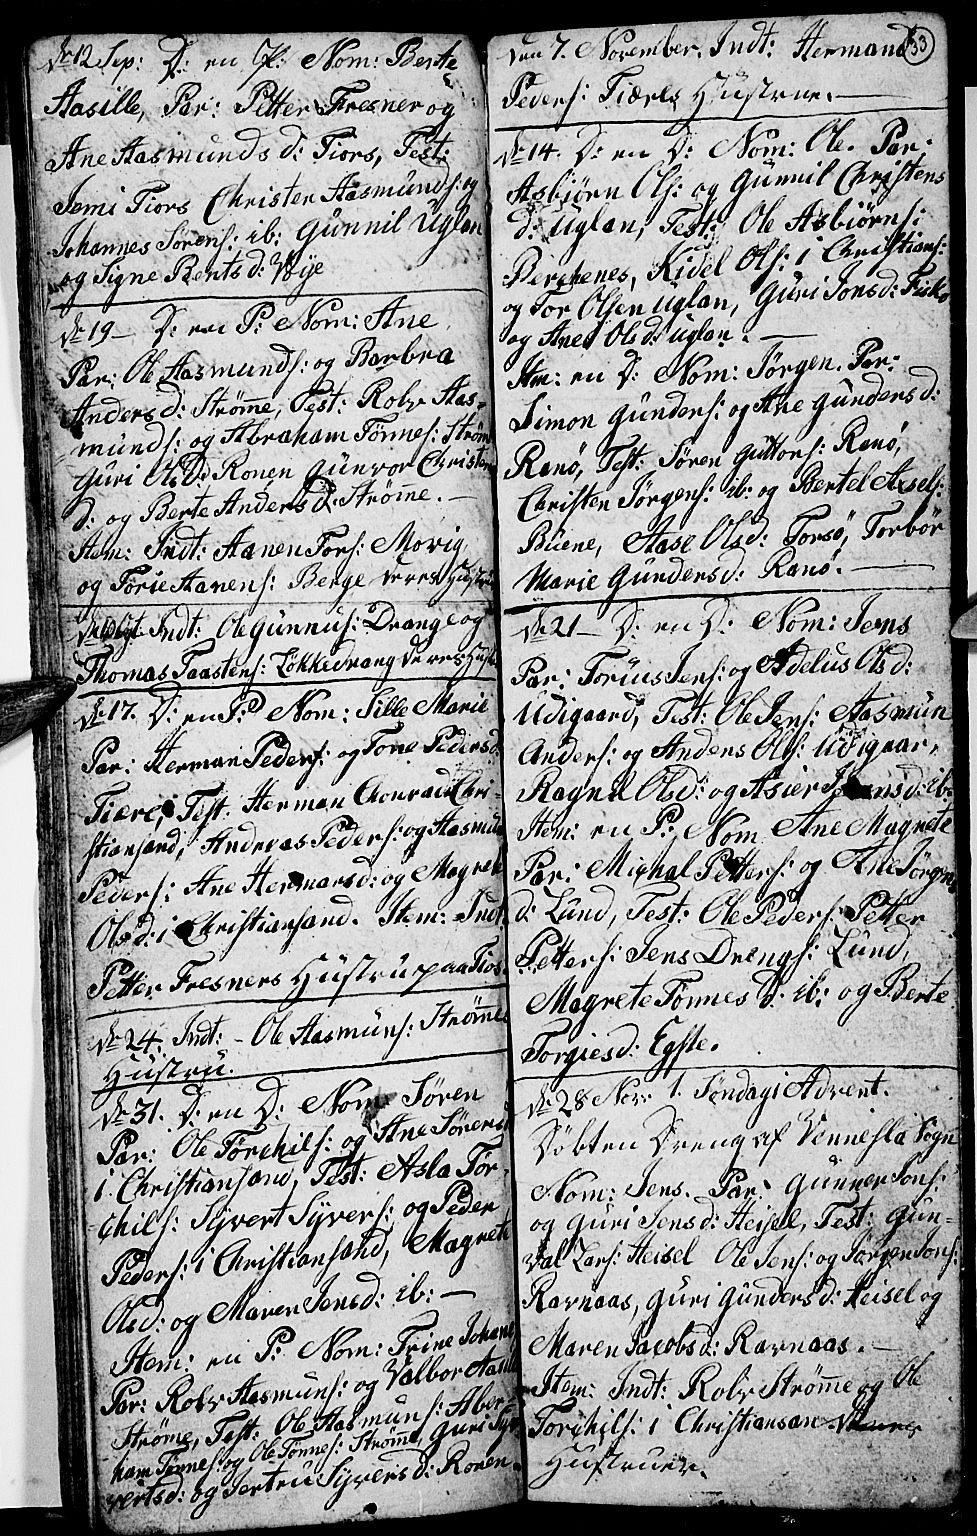 Dn 12 Sep: D: en P: Nom: Berte
Aasille, Par: Petter Fresner og
Ane Aasmunds d: Tiors, Test:
Jemi Tiors Christen Aasmunds: og
Johannes Sörens: ib: Gunnil Uglan
og Signe Bents d: Wye
Dn 19 – D: en P: Nom: Ane
Par: Ole Aasmunds: og Barbra
Anders d: Strömme, Test: Rolv Aas-
munds: og Abraham Tönnes: Ström
Guri Ols D: Ronen Gunvor Christen
d: og Berte Anders d: Strömme. –
Item: Indt: Aanen Tors: Movig,
og Torie Aanens: Berge deres Hustru
Indt: Ole Gunnus: Drange og
Thomas Taastens: Lökkedrang deres Hust
Dn 17. D: en P: Nom: Sille Marie
Par: Herman Peders: og Tone Peders d:
Tiære, Test: Herman Chonrad Chri-
stiansand, Andreas Peders: og Aasmun
Peders: Ane Hermans d: og Magrete
Ols d: i Christiansand. Item: Indt
Petter Fresners Hustru paa Tios
Dn 24. Indt: – Ole Aasmuns: Strömme
Hustru.
Dn 31. D: en D: Nom: Sören
Par: Ole Törchils: og Ane Sörens d
i Christiansand, Test: Asla Tör-
chils: Syvert Syvers: og Peder
Peders: i Christiansand, Magrete
Ols d: og Maren Jens d: ib: –
Item: en P: Nom: Trine Johane
Par: Rolv Aasmuns: og Valbor Aasul
Ströme, Test: Ole Aasmuns: Abra-
ham Tönnes: og Ole Tönnes: Strömme, Guri Sy-
verts d: og Jertru Syvers d: Ronen
53
Den 7. November. Indt: Hermand
Peders: Tiæres Hustrue. –
Dn 14. D: en D: Nom: Ole. Par:
Asbjörn Ols: og Gunnil Christens
d: Uglan, Test: Ole Asbiörns:
Berchenes, Kidel Ols: i Christians:
og Tor Olsen Uglan, Guri Jons d: Fisko
og Ane Ols d: Uglan. –
Itm: en D: Nom: Jörgen. Par:
Simon Gunders: og Ane Gunders d:
Ranö, Test: Sören Guttors: Ranö,
Christen Jörgens: ib: og Bertel Axels:
Buene, Aase Ols d: Torsö, Torbör
Marie Gunders d: Ranö. –
Dn 21 – D: en D: Nom: Jens
Par: Torius Jens: og Adelus Ols d:
Udigaard, Test: Ole Jens: Aasmun
Anders: og Anders Ols: Udigaar,
Ragnil Ols d: og Asier d: ib:
Item: en P: Nom Ane Magrete
Par: Michal Petters: og Ane Jörgens
d: Lund, Test: Ole Peders: Petter
Petters: Jens Drengs: Lund,
Magrete Tonnes d: ib: og Berte
Torgies d: Egste.
Dn 28 Nov: 1. Söndag i Advent.
Döbt en Dreng af Vennesla Sogn
Nom: Jens. Par: Gunner Jons:
og Guri Jens d: Heisel, Test: Gun-
val Lars: Heisel Ole Jens: og Jörgen Jons:
Ravnaas, Guri Gunders d: Heisel og
Maren Jacobs d: Ravnaas. –
Item: Indt: Rolv Strömme og Ole
Torchils: i Christiansan
Hustruer.